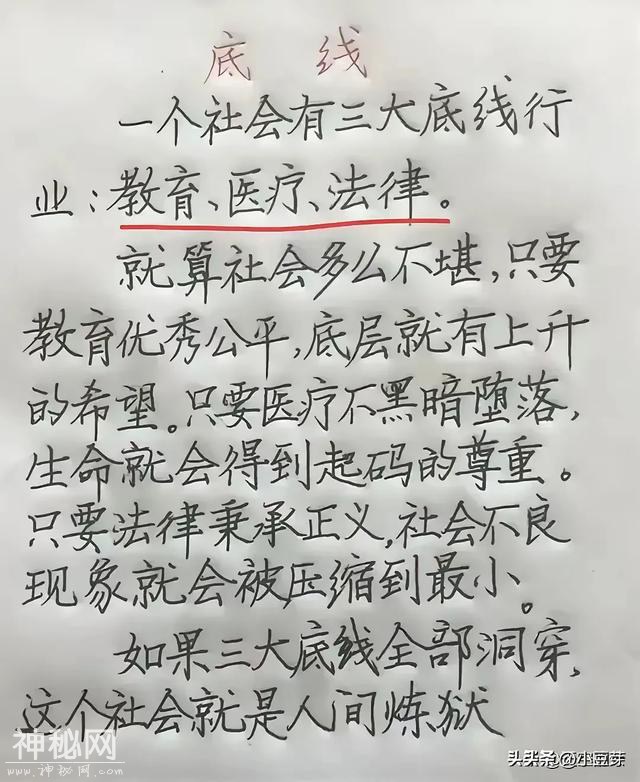 底 线
一个社会有三大底线行
业：教育、医疗、法律。
就算社会多么不堪，只要
教育优秀公平，底层就有上升
的希望。只要医疗不黑暗堕落，
生命就会得到起码的尊重。
只要法律秉承正义，社会不良
现象就会被压缩到最小。
如果三大底线全部洞穿，
这个社会就是人间炼狱
神秘网
www.shenmiwang.com
头条@小豆芽